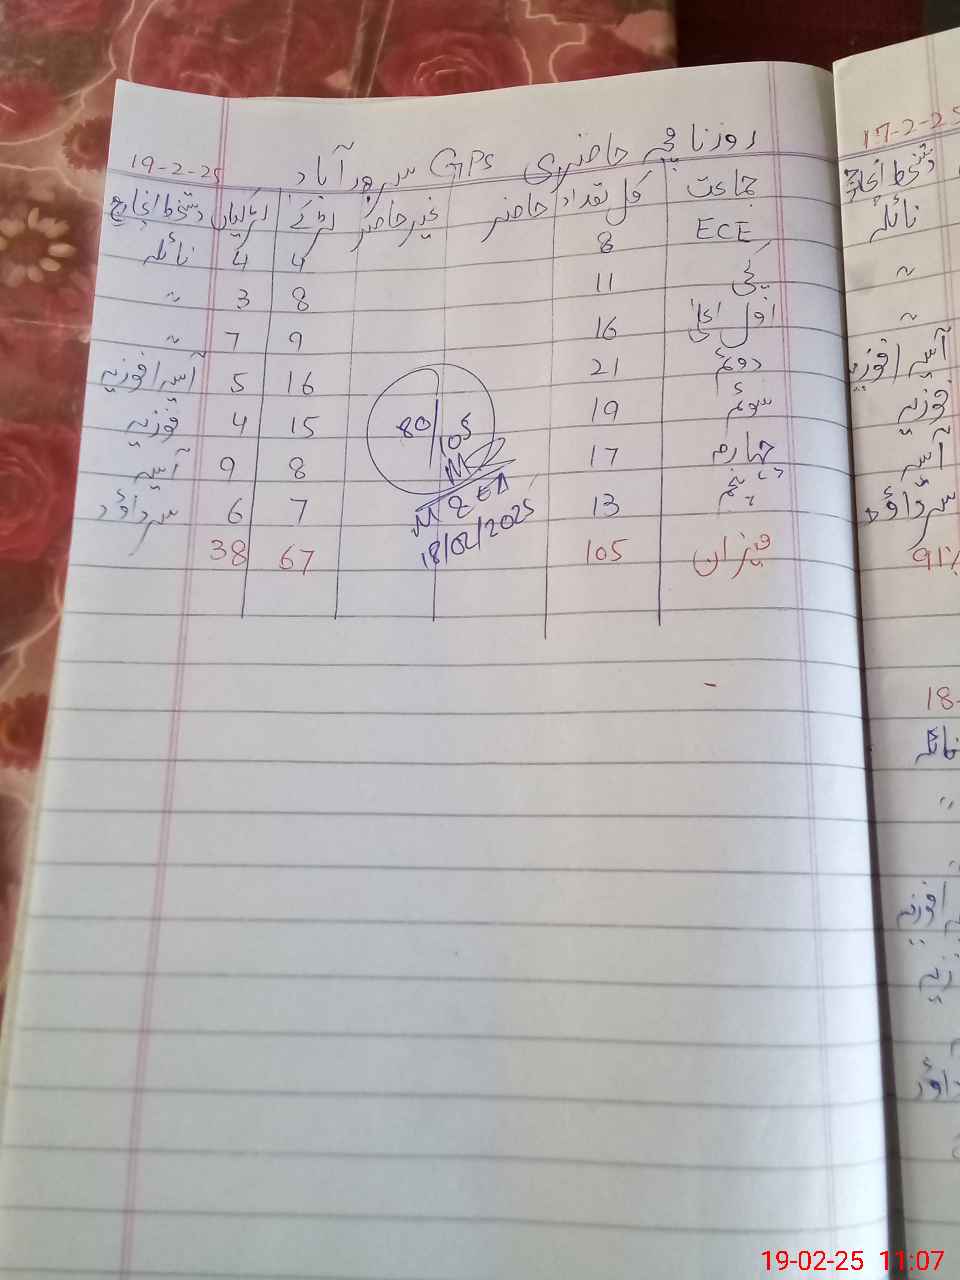 روزنامچہ حاضری GPS سرور آباد 19-2-25
جماعت کل تعداد حاضر غیر حاضر لڑکے لڑکیاں دستخط انچارج
ECE 8 4 4 نائلہ
پکی 11 8 3 "
اول 16 9 7 "
دوئم 21 16 5 آسیہ افوزیہ
سوئم 19 15 4 فوزیہ
چہارم 17 8 9 آسیہ
پنجم 13 7 6 سر داؤد
میزان 105 67 38
80/105
M Z EA
18/02/2025
17-2-25
دستخط انچارج
نائلہ
"
"
آسیہ افوزیہ
فوزیہ
آسیہ
سر داؤد
91%
18-
19-02-25 11:07